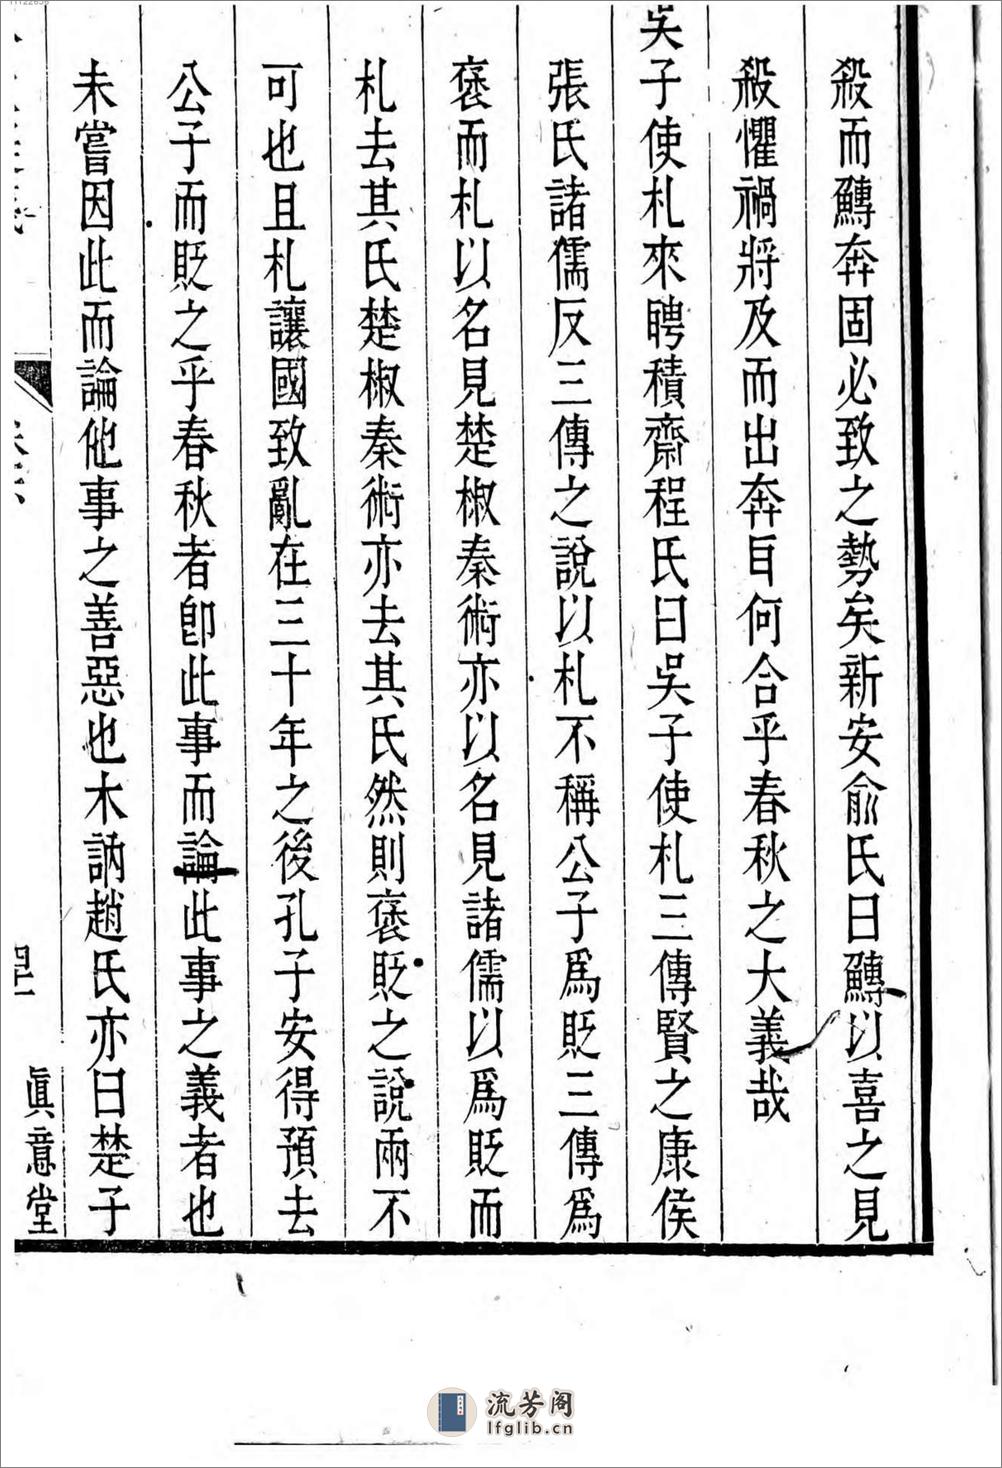 殺而鱄奔固必致之勢矣新安俞氏曰鱄以喜之見
殺懼禍將及而出奔自何合乎春秋之大義哉
吳子使札來聘積齋程氏曰吳子使札三傳賢之康侯
張氏諸儒反三傳之說以札不稱公子爲貶三傳爲
褒而札以名見楚椒秦術亦以名見諸儒以爲貶而
札去其氏楚椒秦術亦去其氏然則褒貶之說兩不
可也且札讓國致亂在三十年之後孔子安得預去
公子而貶之乎春秋者卽此事而論此事之義者也
未嘗因此而論他事之善惡也木訥趙氏亦曰楚子
眞意堂
流芳阁
lfglib.cn